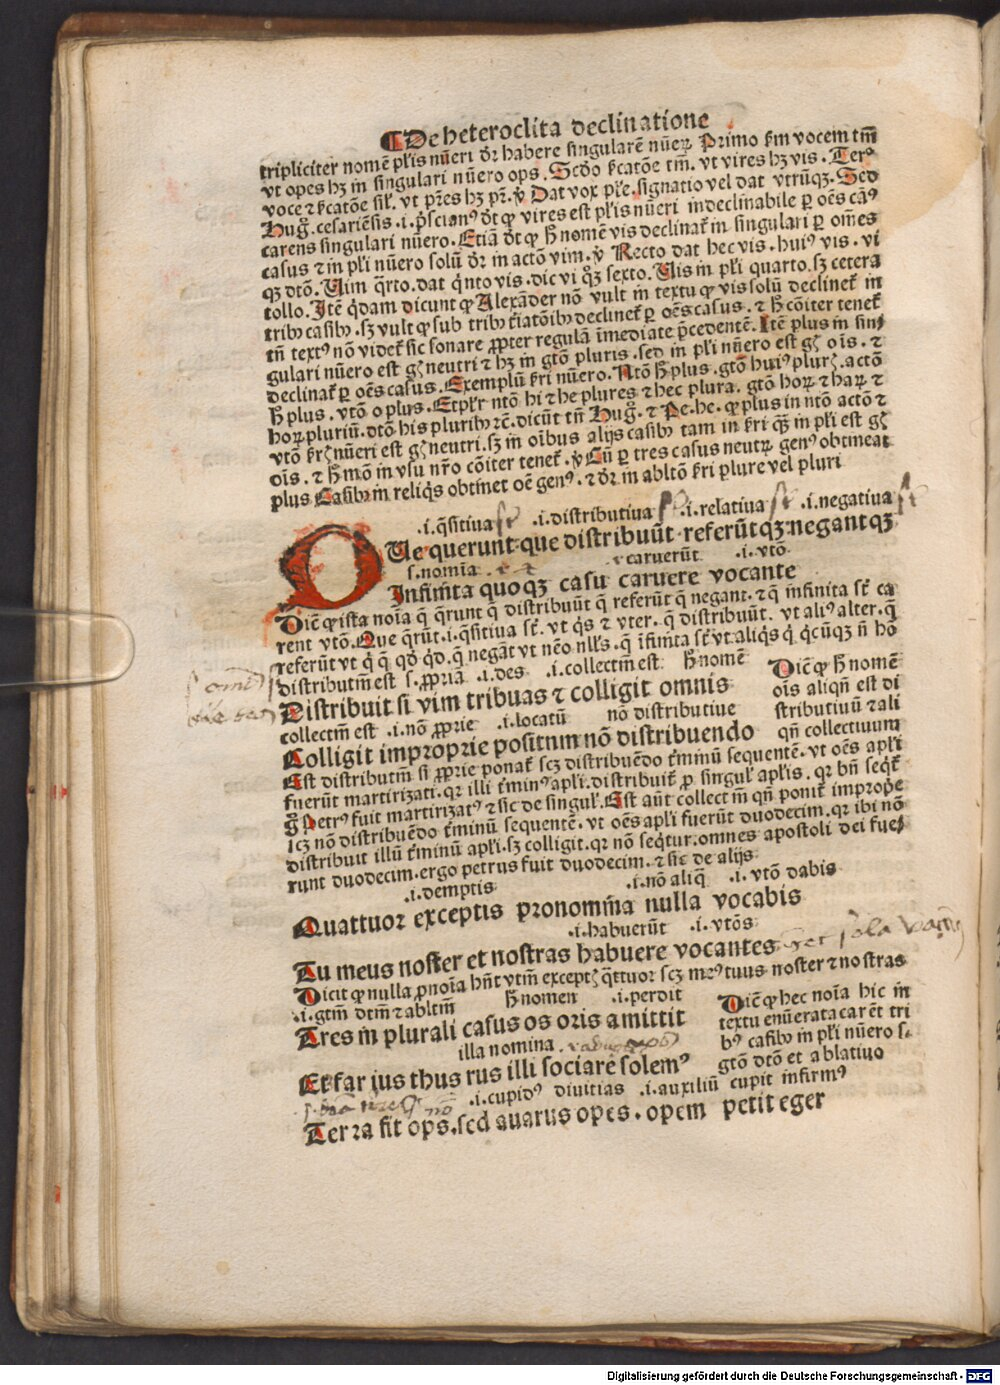 ¶De heteroclita declinatione
tripliciter nomē pl̄is nūeri dr̄ habere singularē nūeꝝ Primo ẜm vocem tm̄
vt opes hꝫ in singulari nūero ops. Scd̓o ẜcatōe tm̄. vt vires hꝫ vis. Terꝰ
voce ⁊ ẜcatōe sil̓. vt pr̄es hꝫ pr̄. ꝟ Dat vox pl̄e. signatio vel dat vtrūqꝫ. Sed
Hug̓. cesariēsis .i. p̄scianꝰ dt̄ ꝙ vires est pl̄is nūeri indeclinabile ꝑ oēs cāꝰ
carens singulari nūero. Etiā dt̄ ꝙ h̄ nomē vis declinat̄ in singulari ꝑ om̄es
casus ⁊ in pl̄i nūero solū dr̄ in actō vim. ꝟ Recto dat hec vis. huiꝰ vis. vi
qꝫ dtō. Uim q̄rto. dat q̄nto vis. dic vi qꝫ̄ sexto. Uis in pl̄i quarto. sꝫ cetera
tollo. Jtē q̄dam dicunt ꝙ Alexāder nō vult in textu ꝙ vis solū declinet̄ in
tribꝰ casibꝰ. sꝫ vult ꝙ sub tribꝰ t̄iatōibꝰ declinet̄ ꝑ oēs casus. ⁊ h̄ cōiter tenet̄
tn̄ textꝰ nō videt̄ sic sonare ꝓpter regulā īmediate p̄cedentē. Itē plus in sin⸗
gulari nūero est gn̄s neutri ⁊ hꝫ in gtō pluris. sed in pl̄i nūero est gn̄s oīs. ⁊
declinat̄ ꝑ oēs casus. Exemplū ẜri nūero. Ntō h̄ plus. gtō huiꝰ plurꝭ. actō
h̄ plus. vtō o plus. Et pl̄r ntō hi ⁊ he plures ⁊ hec plura. gtō hoꝝ ⁊ haꝝ ⁊
hoꝝ pluriū. dtō his pluribꝰ ⁊c̄. dicūt tn̄ Hug̓. ⁊ Pe. he. ꝙ plus in ntō actō ⁊
vtō ẜrꝭ nūeri est gn̄s neutri. sꝫ in oībus alijs casibꝰ tam in ẜri qꝫ̄ in pl̄i est gn̄s
oīs. ⁊ h̄ mō in vsu nr̄o cōiter tenet̄. ꝟ Cū ꝑ tres casus neutꝝ genꝰ obtineat
plus Casibꝰ in reliq̄s obtinet oē genꝰ. ⁊ dr̄ in abltō ẜri plure vel pluri
.i. q̄sitiua .i. distributiua .i. relatiua .i. negatiua
QUe querunt que distribuūt referūtqꝫ negantqꝫ
s. nomīa caruerūt .i. vtō
Infinita quoqꝫ casu caruere vocante
Diē ꝙ ista noīa q̄ q̄runt q̄ distribuūt q̄ referūt q̄ negant. ⁊ q̄ infinita st̄ ca
rent vtō. Que q̄rūt .i. q̄sitiua st̄. vt q̄s ⁊ vter. q̄ distribuūt. vt aliꝰ alter. q̄
referūt vt q̄ q̄ qd̄ q̄d. q̄ negāt vt nēo nl̄ls. q̄ īfinita st̄ vt aliq̄s q̄ q̄cūqꝫ n̄ hō
distributiū est s. ꝓpria .i. des .i. collectiū est h̄ nomē
Distribuit si vim tribuas ⁊ colligit omnis
collectiū est .i. nō ꝓprie .i. locatū nō distributiue
Colligit improprie positum nō distribuendo
Diē ꝙ h̄ nomē
oīs aliqn̄ est di
stributiuū ⁊ ali
qn̄ collectiuum
Est distributiū si ꝓprie ponat̄ scꝫ distribuēdo t̄minū sequentē. vt oēs apl̄i
fuerūt martirizati. qr illi t̄minꝰ apl̄i. distribuit̄ ꝓ singul̓ apl̄is. qr bn̄ seq̄t̄
g̊ Petrꝰ fuit martirizatꝰ ⁊ sic de singul̓. Est aūt collectiū qn̄ ponit̄ improp̄e
scꝫ nō distribuēdo t̄minū sequentē. vt oēs apl̄i fuerūt duodecim. qr ibi nō
distribuit illū t̄minū apl̄i. sꝫ colligit. qr nō seq̄tur. omnes apostoli dei fue⸗
runt duodecim. ergo petrus fuit duodecim. ⁊ sic de alijs
.i. demptis .i. nō aliq̄ .i. vtō dabis
Quattuor exceptis pronomīna nulla vocabis
.i. habuerūt .i. vtōs
Tu meus noster et nostras habuere vocantes
Dicit ꝙ nulla ꝓnoīa hn̄t vtm̄ exceptꝭ q̄ttuor scꝫ meꝰ tuus noster ⁊ nostras
.i. gtm̄ dtm̄ ⁊ abltm̄ h̄ nomen .i. perdit
Tres in plurali casus os oris amittit
illa nomina
Et far ius thus rus illi sociare solemꝰ
Diē ꝙ hec noīa hic in
textu enūerata carēt tri
bꝰ casibꝰ in pl̄i nūero s.
gtō dtō et ablatiuo
.i. cupidꝰ diuitias .i. auxiliū cupit infirmꝰ
Terra fit ops. sed auarus opes. opem petit eger
Digitalisierung gefördert durch die Deutsche Forschungsgemeinschaft - DFG